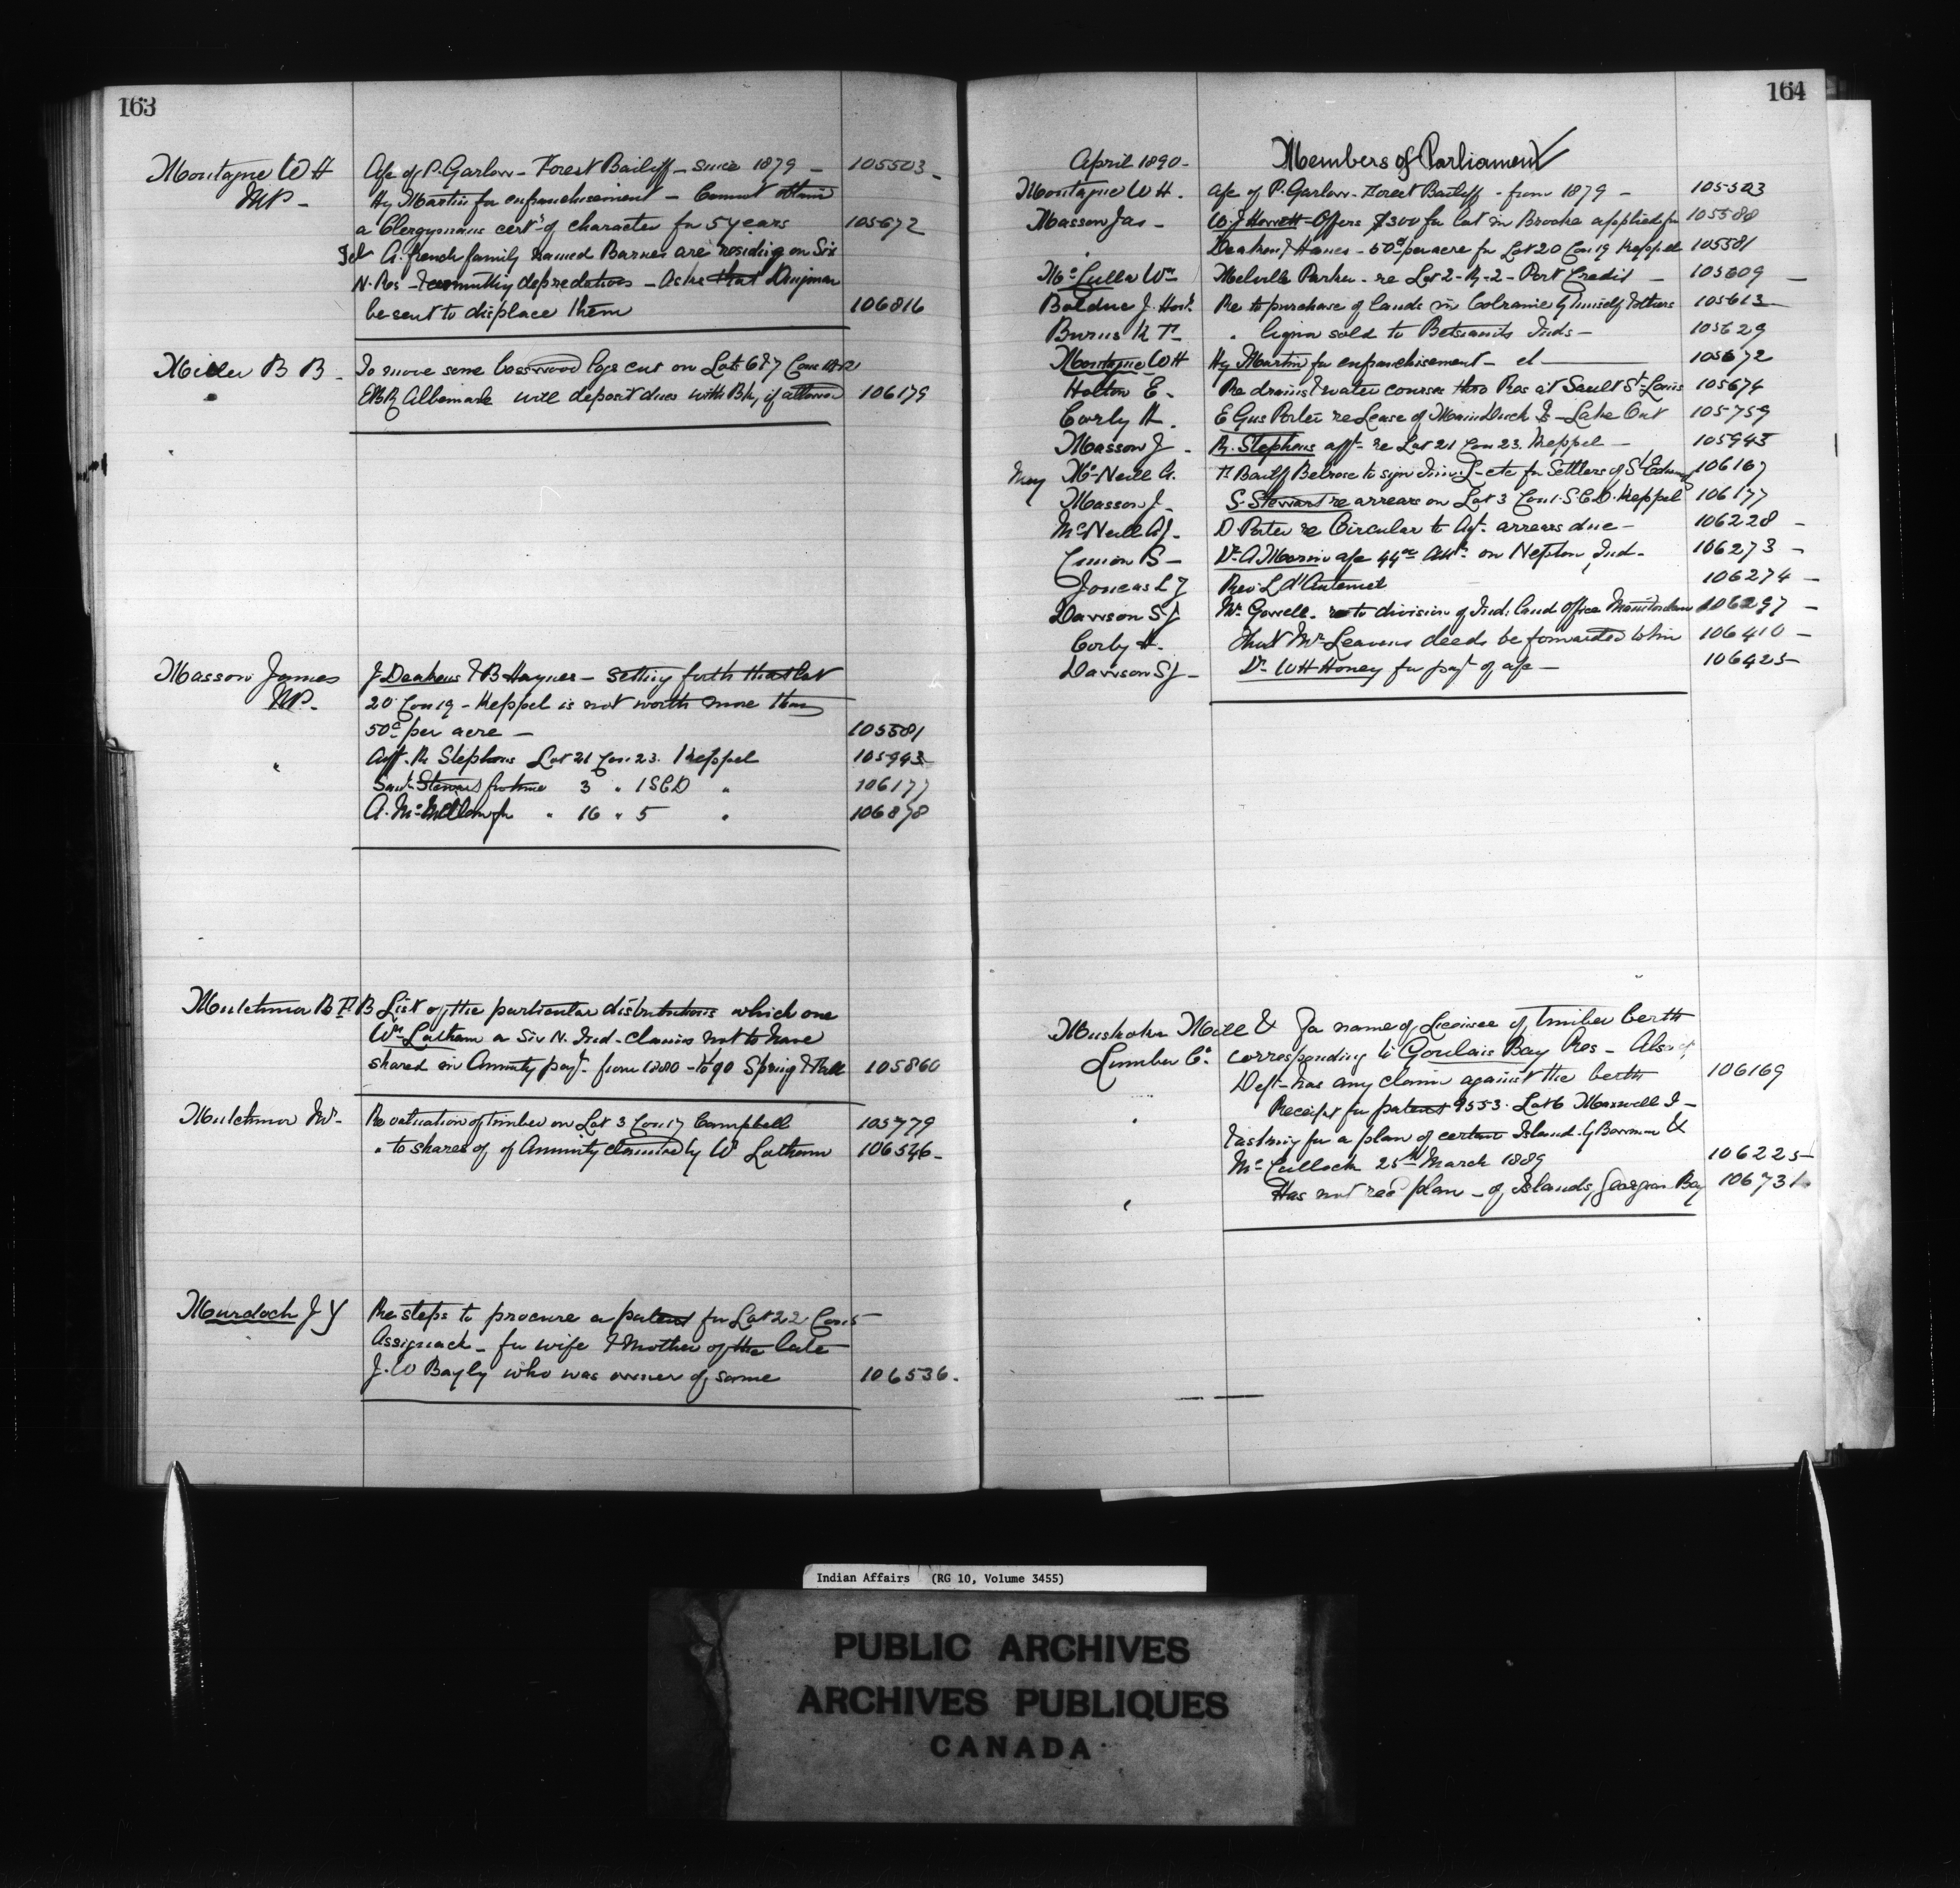 163
Montague W H a/c of P. Garlow - Forest Bailiff - since 1879 - 105503 -
MP - Hy Martin for enfranchisement - Cannot obtain
a Clergymans cert of character for 5 years 105672
Tel A. french family named Barnes are residing on Six
N. Res - & committing depredations - Asks that Dingman
be sent to displace them 106816
Miller B B - To move some basswood logs cut on Lots 6 & 7 Con
EBR Albemarle will deposit dues with Bk, if allowed 106179
Masson James J Deakens & B Haynes - Setting forth that Lot
MP. 20 Con 19 - Keppel is not worth more than
50c per acre - 105581
" Aff. R Stephens Lot 21 Con 23. Keppel 105943
Stewart for time 3 " 1 SCD " 106177
A. Mc " 16 " 5 " 106878
Mutchmor B List of the particular distributions which one
Wm Latham a Six N. Ind - claims not to have
shared in Annuity payt from 1880 - to 90 Spring & Fall 105860
Mutchmor Mr. Re valuation of timber on Lot 3 Con 17 Campbell 105779
" to shares of of Annuity claimed by W Latham 106546 -
Murdoch J Y Re steps to procure a patent for Lot 22 Con 5
Assignack - for wife & Mother of the late
J. W Bayly who was owner of same 106536.
164
April 1890 - Members of Parliament
Montague W H. a/c of P. Garlow - Forest Bailiff - from 1879 - 105503
Masson Jas - W. J Offers $300 for lot in Brooke applied for 105580
Deaken & Hanes - 50c per acre for Lot 20 Con 19 Keppel 105581
McCulla Wm Melville Parker - re Lot 2 - R - 2 - Port Credit - 105609 -
Bolduc J. Re to purchase of lands in Colraine by himself & others 105613
Burns K F " liquor sold to Betsiamits Inds - 105629
Montague W H Hy Martin for enfranchisement - cl - 105672
Holton E. Re drains & water courses thro Res at Sault St Louis 105674
Corby H. E Gus Porter re Lease of Main Duck Is - Lake Ont 105759
Masson J - R. Stephens afft - re Lot 21 Con 23. Keppel - 105943
May McNeill A. F. Bailiff Belrose to sign - etc for Settlers of St Edmund 106167
Masson J - S. Stewart re arrears on Lot 3 Con 1. S.C.D. Keppel 106177
McNeill A J. D Porter re Circular to Agt. arrears due - 106228 -
Dr. A Morin a/c on Ind - 106273 -
Joncas L Z Rev L d'Anternet 106274 -
Dawson S J Mr. Gowell - re to division of Ind: land Office Manitoulin 106297 -
Corby H. That Mr Leavens deeds be forwarded to him 106410 -
Dawson S J - Dr. W H Honey for payt of a/c - 106425
Muskoka Mill & For name of Licensee of Timber berth
Lumber Co. corresponding to Goulais Bay Res - Also if
Dept - has any claim against the berth 106169
" Receipt for patent 9553. Lot 6 Maxwell I -
& asking for a plan of certain Island. by &
McCullock 25th March 1889 106225
" Has not recd plan - of Islands, Georgian Bay 106731
Indian Affairs (RG 10, Volume 3455)
PUBLIC ARCHIVES
ARCHIVES PUBLIQUES
CANADA